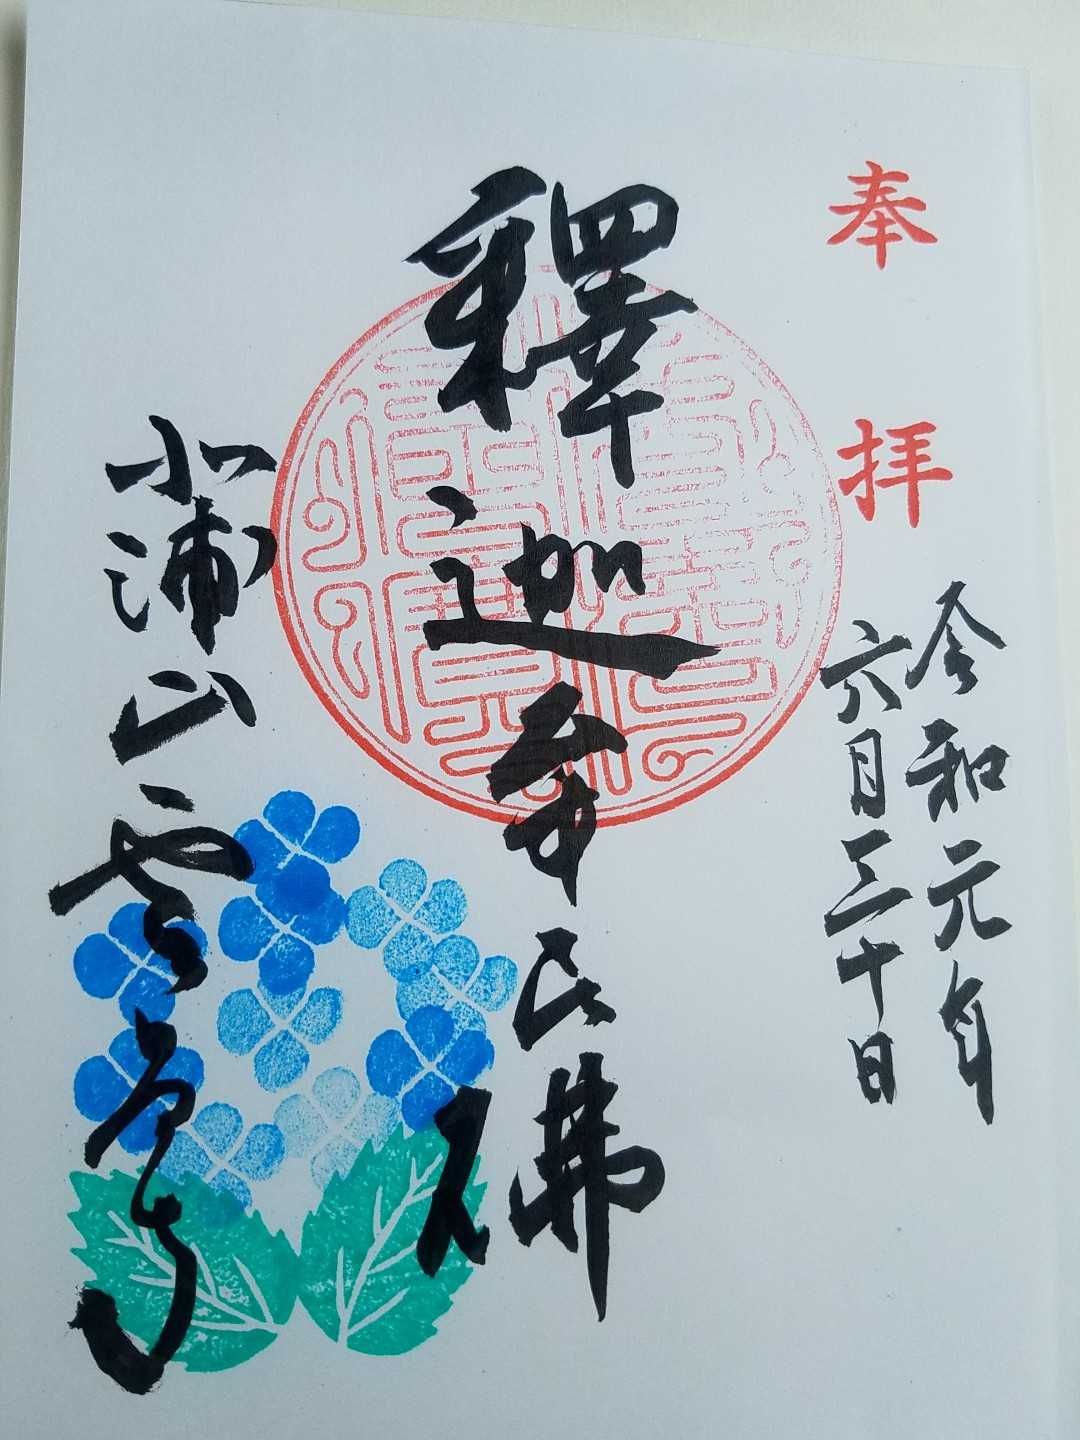 奉拝
令和元年
六月三十日
釋迦牟尼佛
北浦山雲昌寺